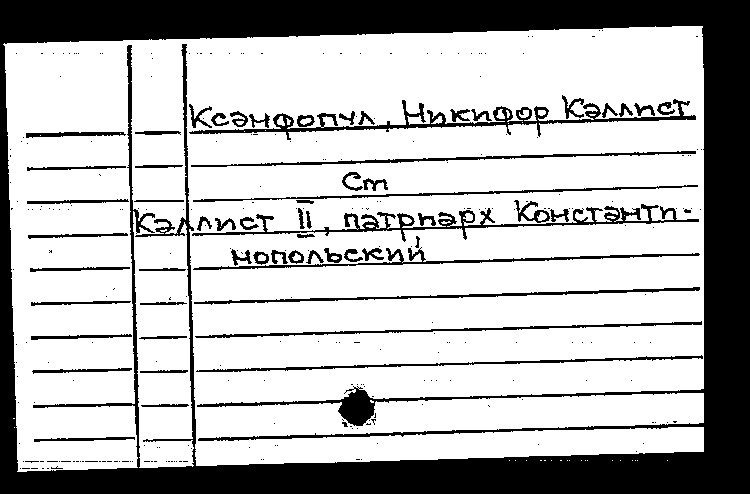 Ксанфопул, Никифор Каллист
См
Каллист II, патриарх Константи-
нопольский